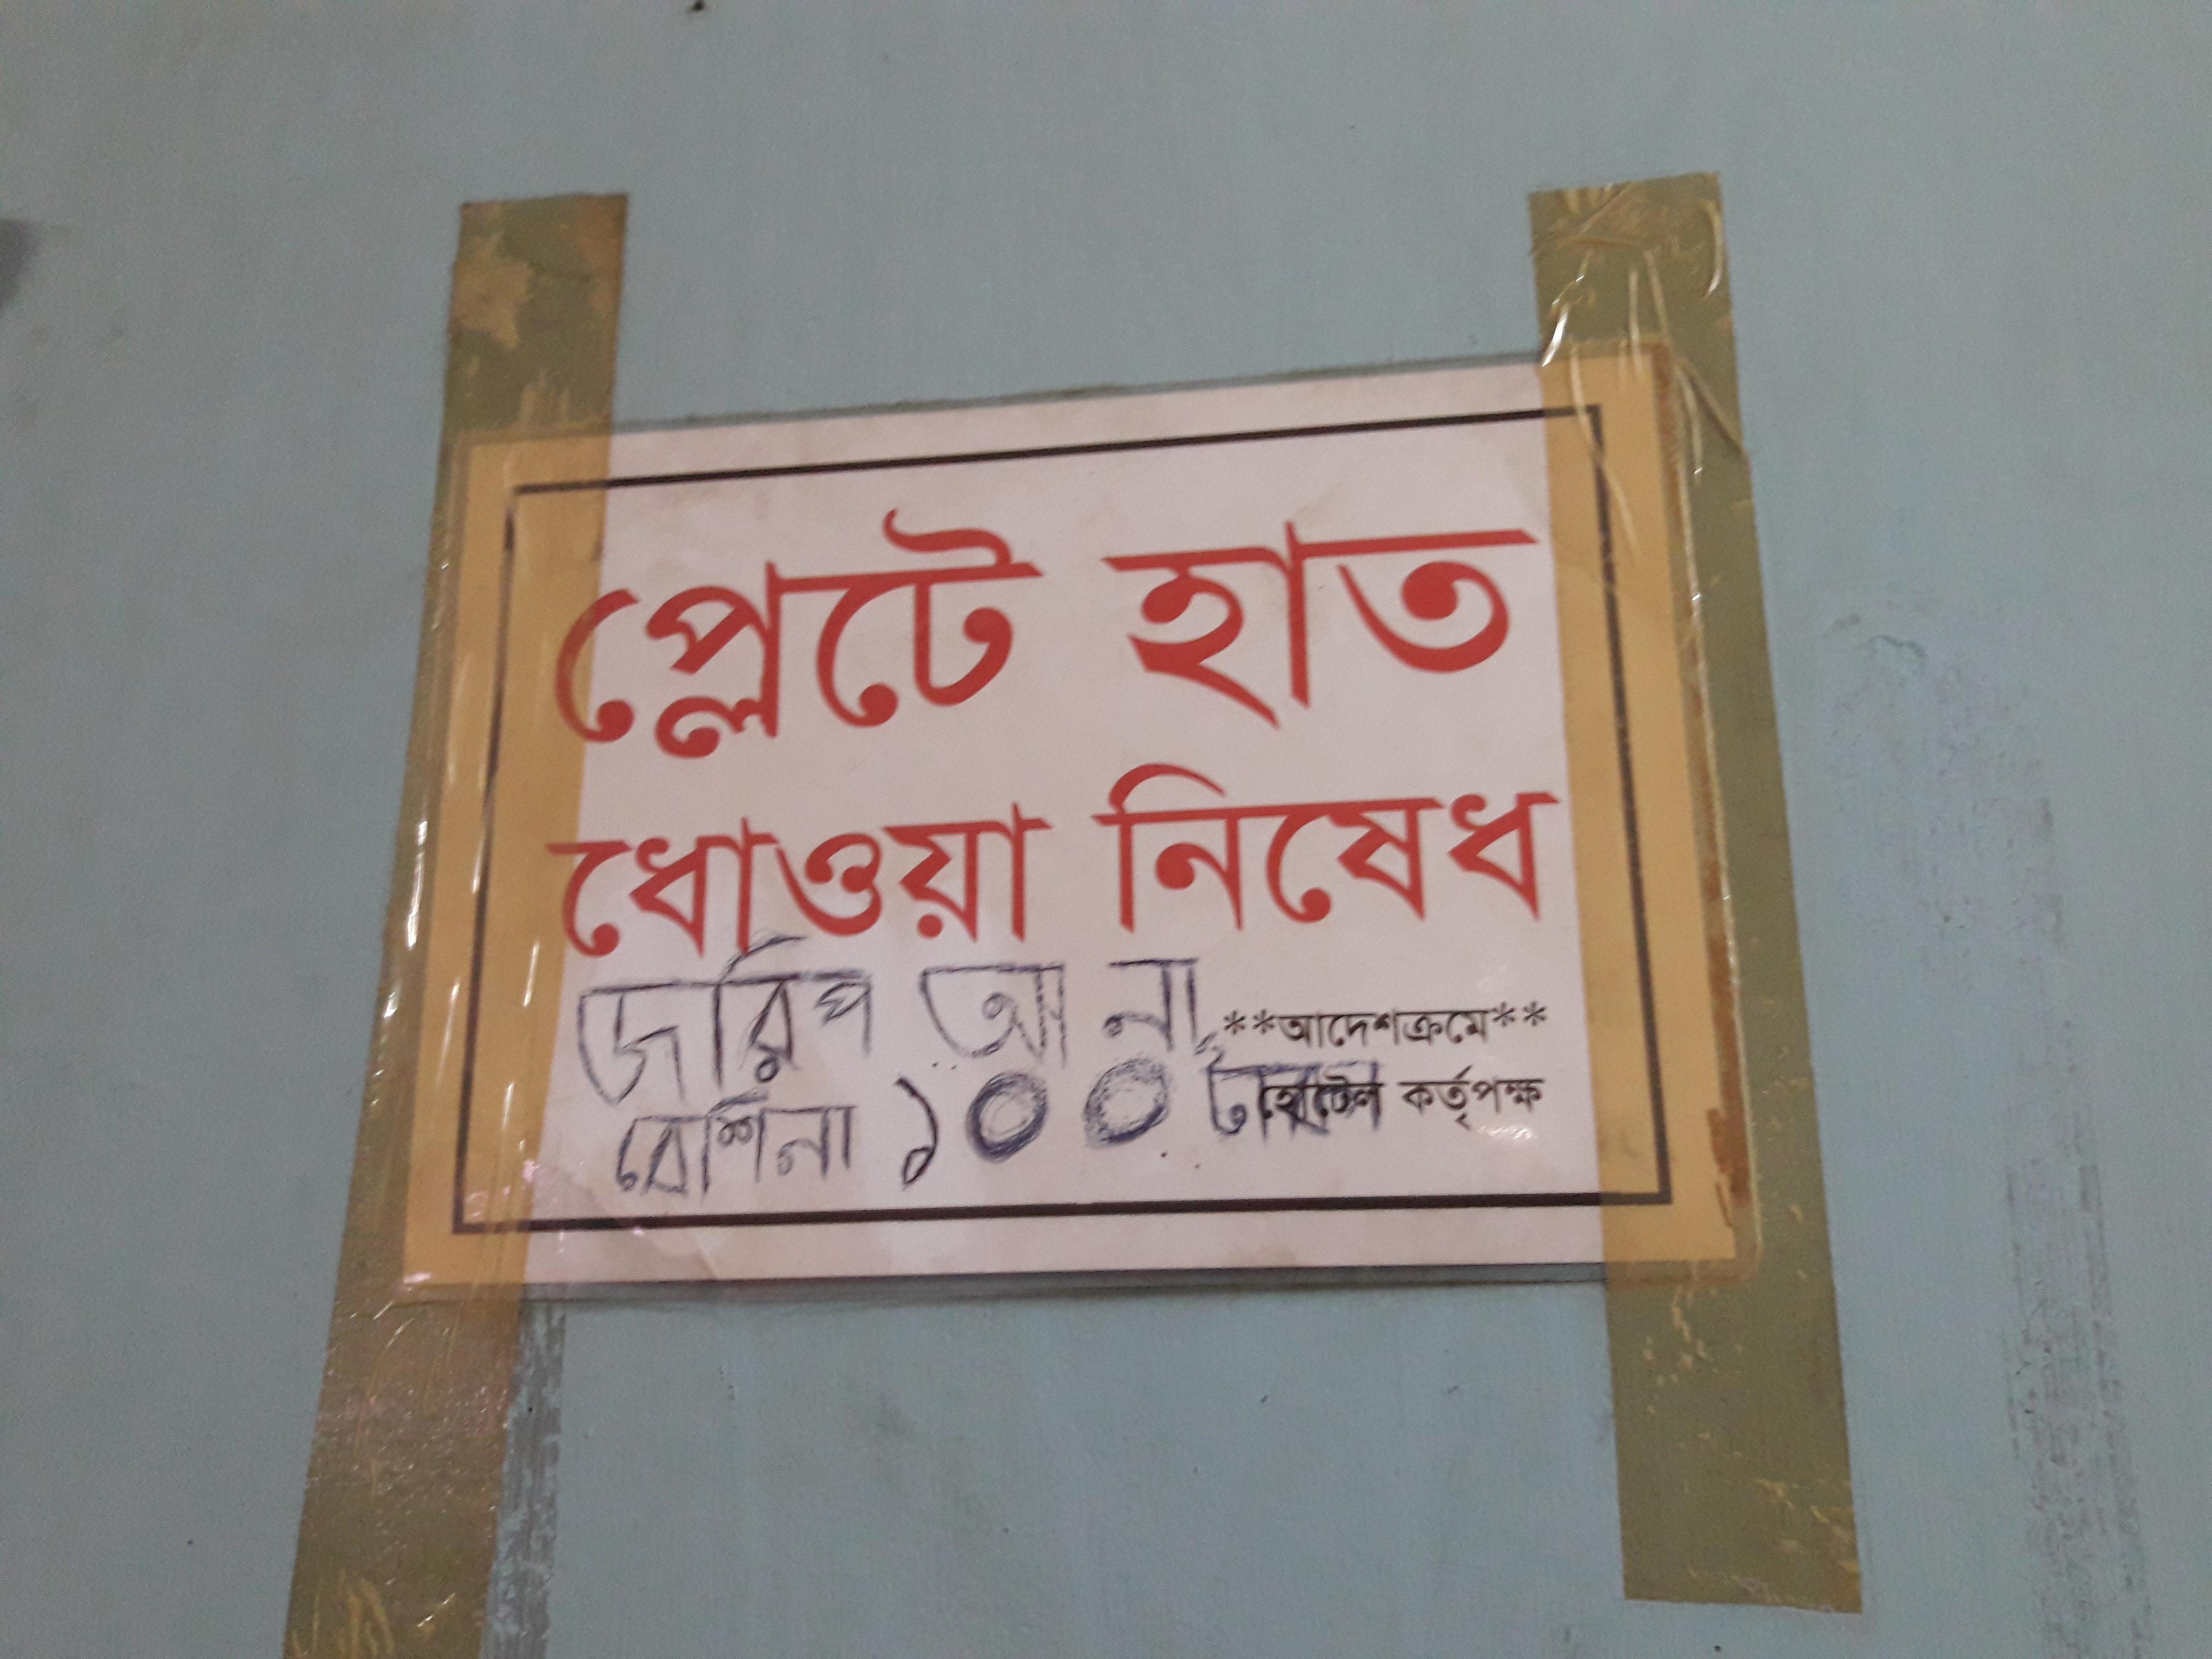 প্লেটে হাত
ধোওয়া নিষেধ
জরিপ আনা
**আদেশক্রমে**
বেশিনা ১০০ টাকা
হোটেল কর্তৃপক্ষ